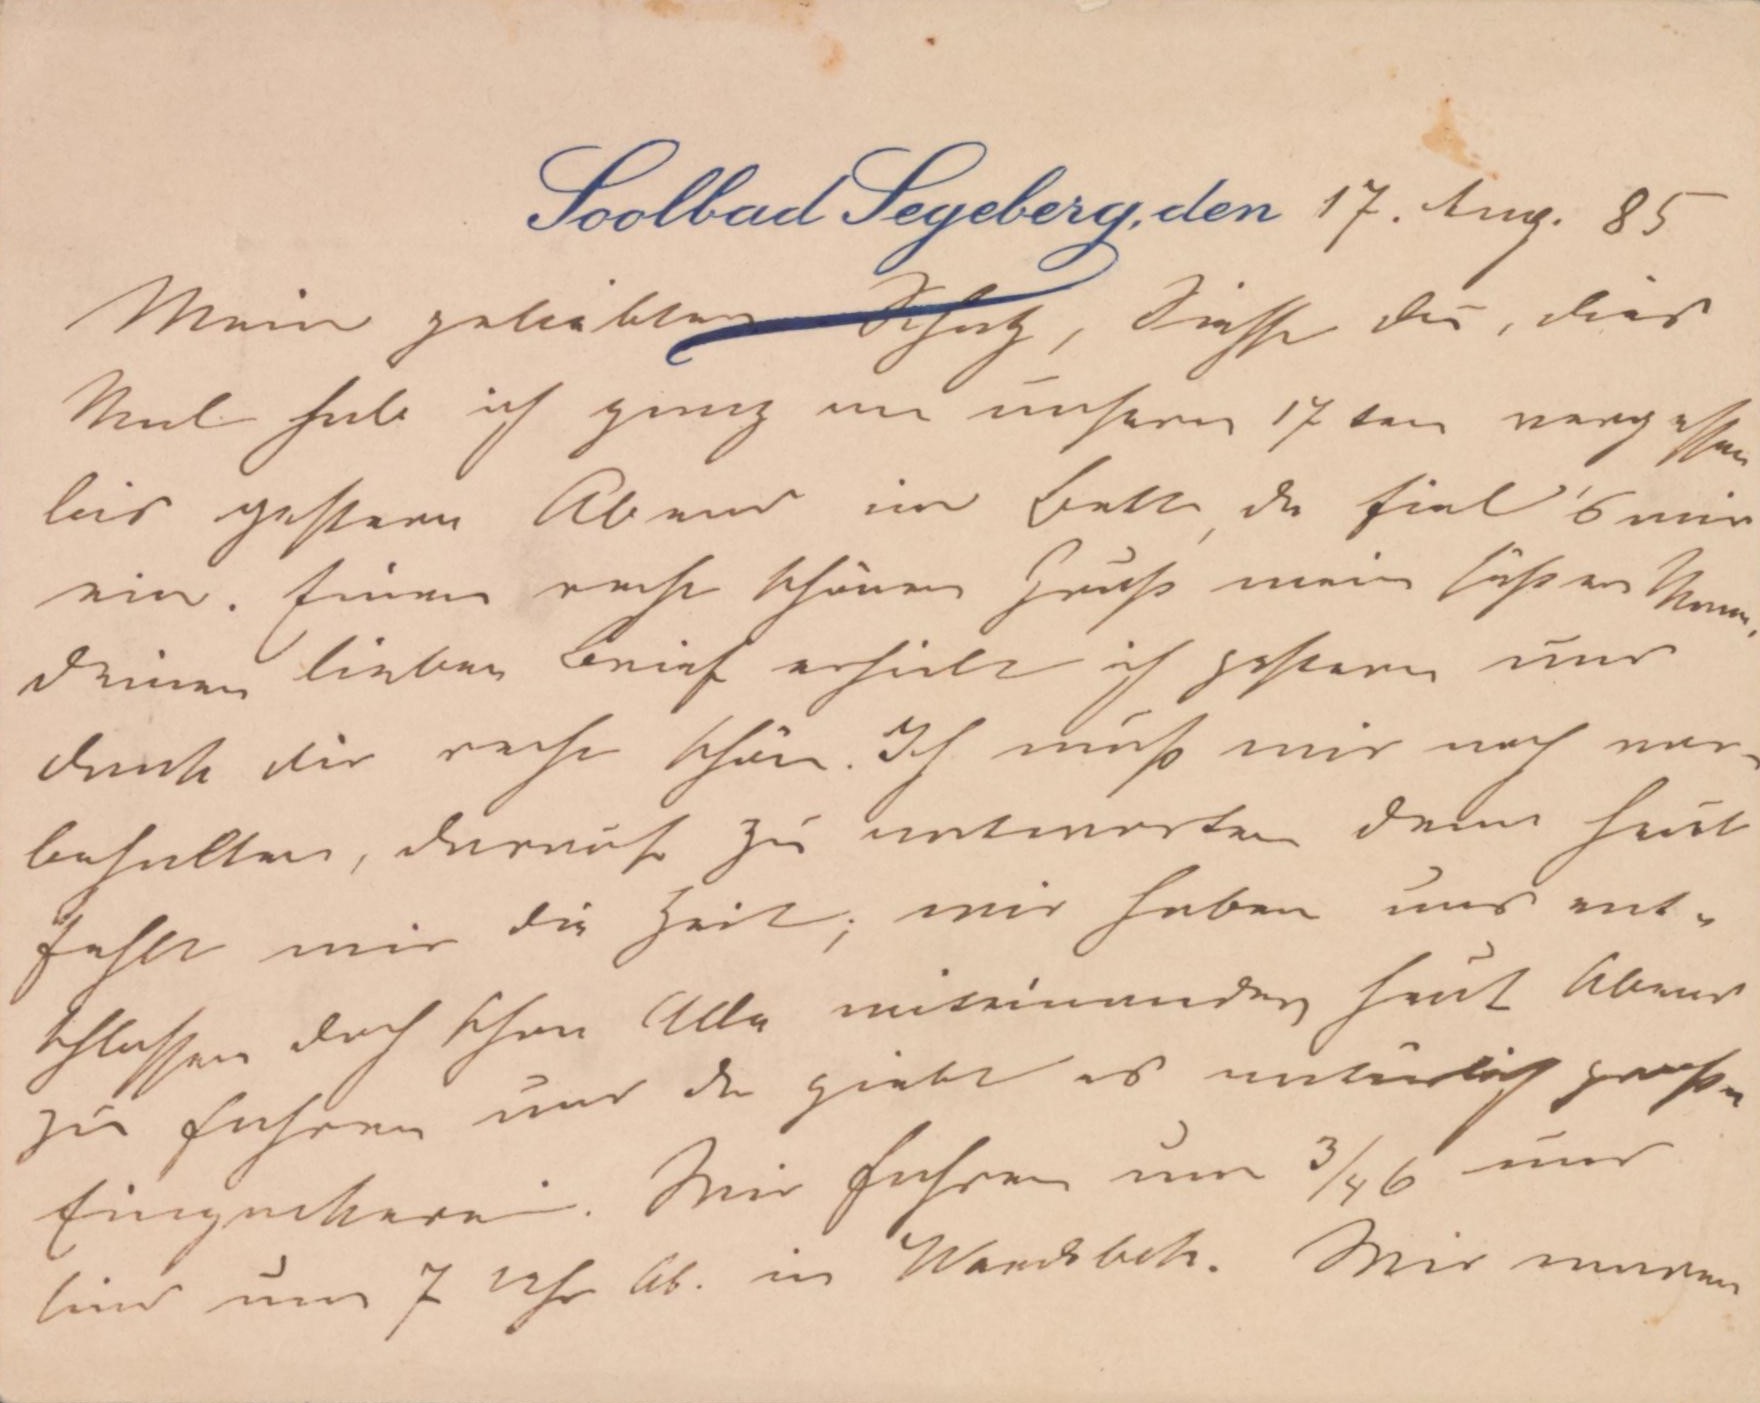 Soolbad Segeberg, den 17. Aug. 85
Mein geliebter Schatz, Siehst du, dies
Mal habe ich ganz an unsern 17ten vergessen
bis gestern Abend im Bett, da fiel's mir
ein. Einen recht schönen Gruß mein süßer Mann,
deinen lieben Brief erhielt ich gestern und
dank dir recht schön. Ich muß mir noch vor-
behalten, darauf zu antworten denn heut
fehlt mir die Zeit; wir haben uns ent-
schlossen doch schon Alle miteinander heut Abend
zu fahren und da giebt es natürlich große
Eingepackerei. Wir fahren um 3/4 6 und
sind um 7 Uhr Ab. in Wandsbek. Wir waren